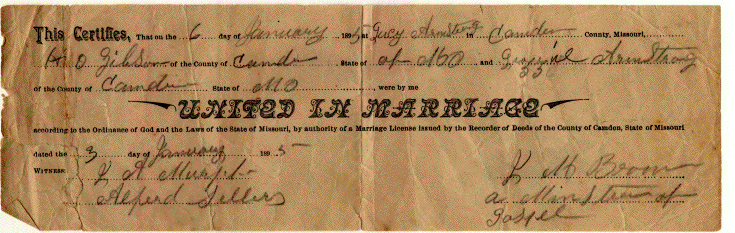 This Certifies, That on the 6 day of January 1895 at Lucy Armstrong in Camden County, Missouri,
O Gibson of the County of Camden State of Mo and Armstrong
of the County of Camden State of Mo, were by me
UNITED IN MARRIAGE
according to the Ordinance of God and the Laws of the State of Missouri, by authority of a Marriage License issued by the Recorder of Deeds of the County of Camden, State of Missouri
dated the 3 day of January 1895
WITNESS:
Alferd Sellers
M Brown
a Minister of
Gospel